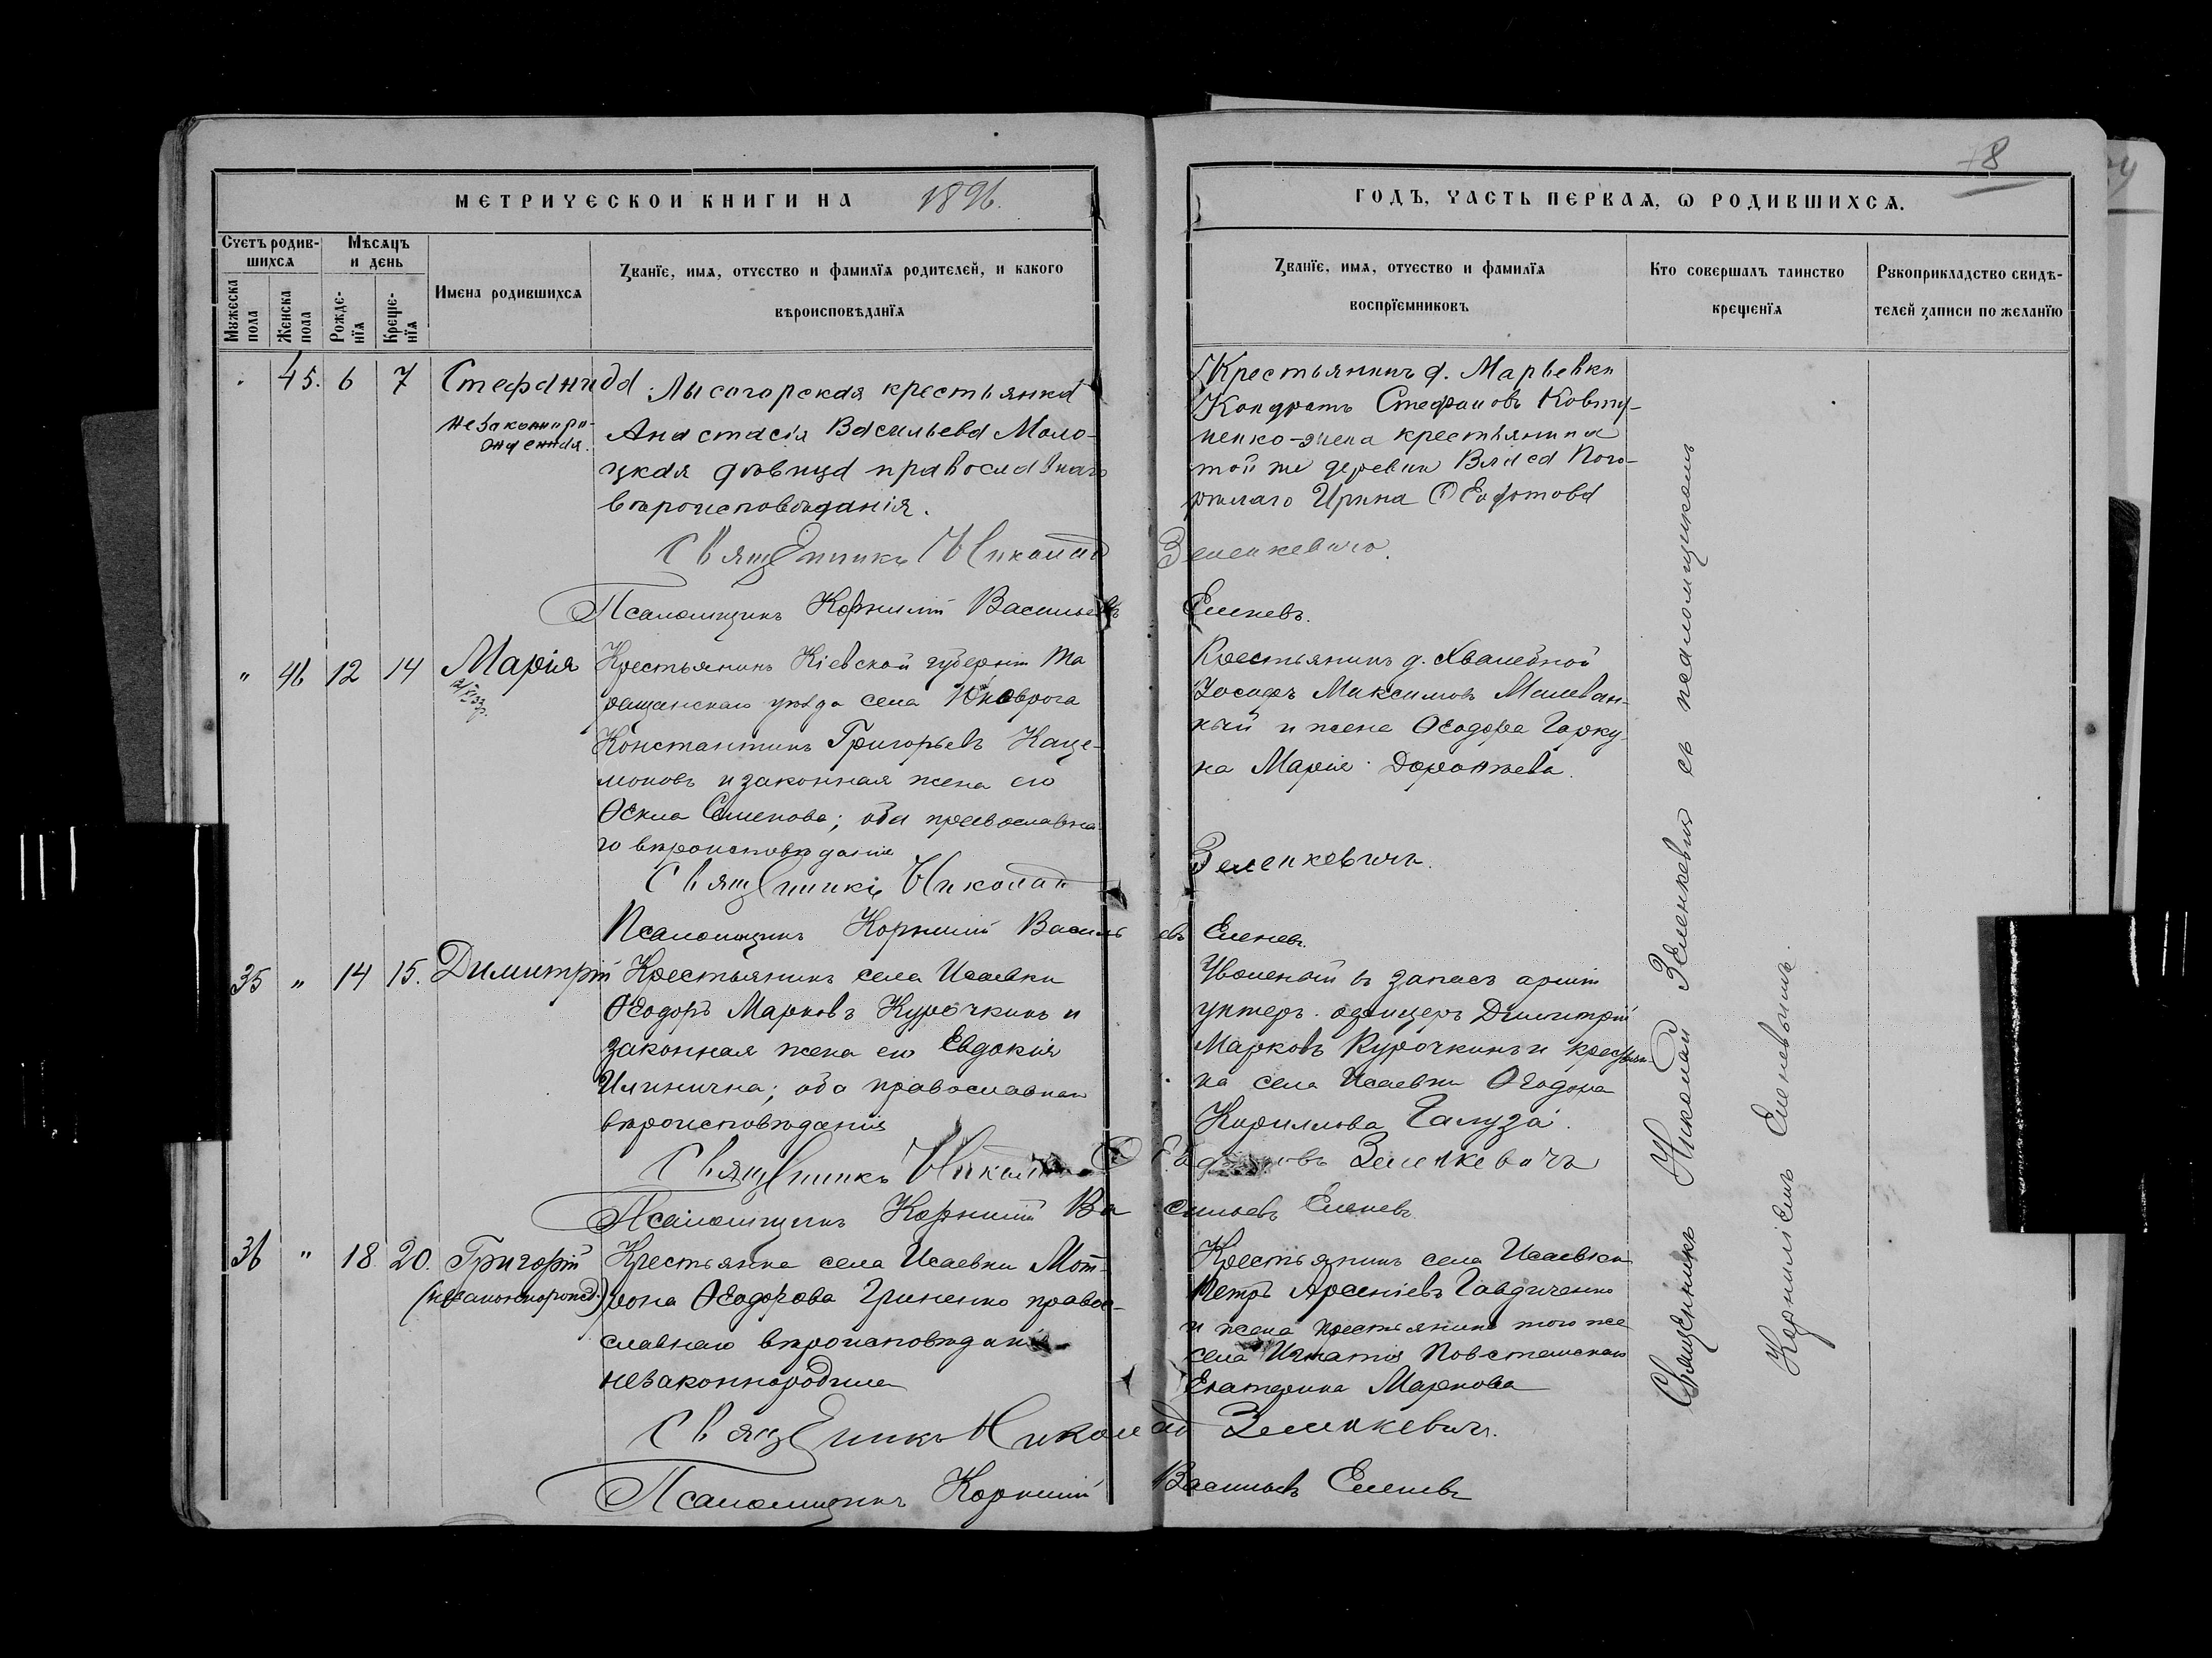 78
МЕТРИЧЕСКОЙ КНИГИ НА 1896.
ГОДЪ, ЧАСТЬ ПЕРВАѦ, Ѡ РОДИВШИХСѦ.
Счетъ родив-
шихсѧ
Мужеска пола
Женска пола
Мѣсѧцъ
и день
Рожде-
нїѧ
Креще-
нїѧ
Имена родившихсѧ
Званїе, имѧ, отчество и фамилїѧ родителей, и какого
вѣроисповѣданїѧ
Званїе, имѧ, отчество и фамилїѧ
воспрїемниковъ
Кто совершалъ таинство
крещенїѧ
Рукоприкладство свидѣ-
телей записи по желанїю
45. 6 7 Стефанида
незаконноро-
жденная.
Лысогорская крестьянка
Анастасія Васильева Моло-
цкая дѣвица православнаго
вѣроисповѣданія.
Крестьянинъ д. Марьевки
Кондратъ Стефановъ Ковту-
ненко - жена крестьянина
той же деревни Власа Пого-
рѣлаго Ирина Ѳеофотова
Священникъ Николай Зеленкевичъ.
Псаломщикъ Корнилій Васильевъ Еленевъ.
" 46 12 14 Марія
Крестьянинъ Кіевской губерніи Та
ращанскаго уѣзда села
Константинъ Григорьевъ Каце-
моновъ и законная жена его
Ѳекла Семенова; оба православна
го вѣроисповѣданія
Крестьянинъ д. Хвалебной
Іосифъ Максимовъ Малеван-
ный и жена Ѳеодора Гарку-
на Марія Доронжева.
Священникъ Николай Зеленкевичъ.
Псаломщикъ Корнилій Васильевъ Еленевъ.
35 " 14 15. Димитрій
Крестьянинъ села Исаевки
Ѳеодоръ Марковъ Курочкинъ и
законная жена его Евдокія
Илинична; оба православнаго
вѣроисповѣданія
Уволеный въ запасъ арміи
унтеръ-офицеръ Димитрій
Марковъ Курочкинъ и крестьян-
ка села Исаевки Ѳеодора
Кириллова Галуза.
Священникъ Николай Зеленкевичъ
Псаломщикъ Корнилій Васильевъ Еленевъ
36 " 18. 20. Григорій
(незаконнорожд.)
Крестьянка села Исаевки Мот-
рона Ѳеодорова Гриненко право-
славнаго вѣроисповѣданія
незаконнородила
Крестьянинъ села Исаевки
Петръ Арсеніевъ Гавдиченко
и жена крестьянина того же
села Игнатія Повстанскаго
Екатерина Маркова
Священникъ Николай Зеленкевичъ.
Псаломщикъ Корнилій Васильевъ Еленевъ
Священникъ Николай Зеленкевичъ съ псаломщикомъ
Корниліемъ Еленевымъ.